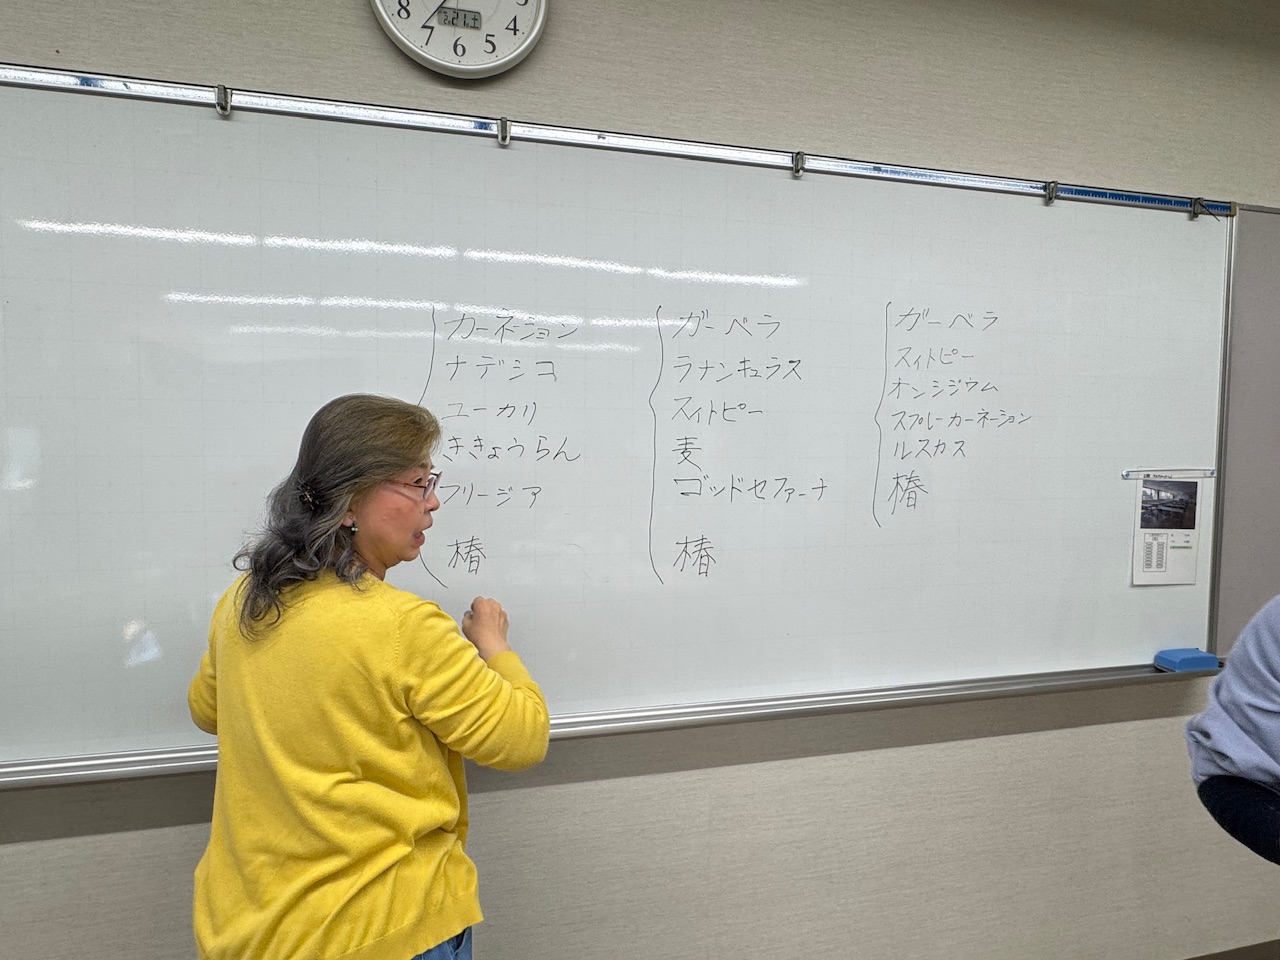 8
7
6
5
4
3
2.21.土
カーネーション
ナデシコ
ユーカリ
ききょうらん
フリージア
椿
ガーベラ
ラナンキュラス
スイトピー
麦
ゴッドセファーナ
椿
ガーベラ
スイトピー
オンシジウム
スプレーカーネーション
ルスカス
椿